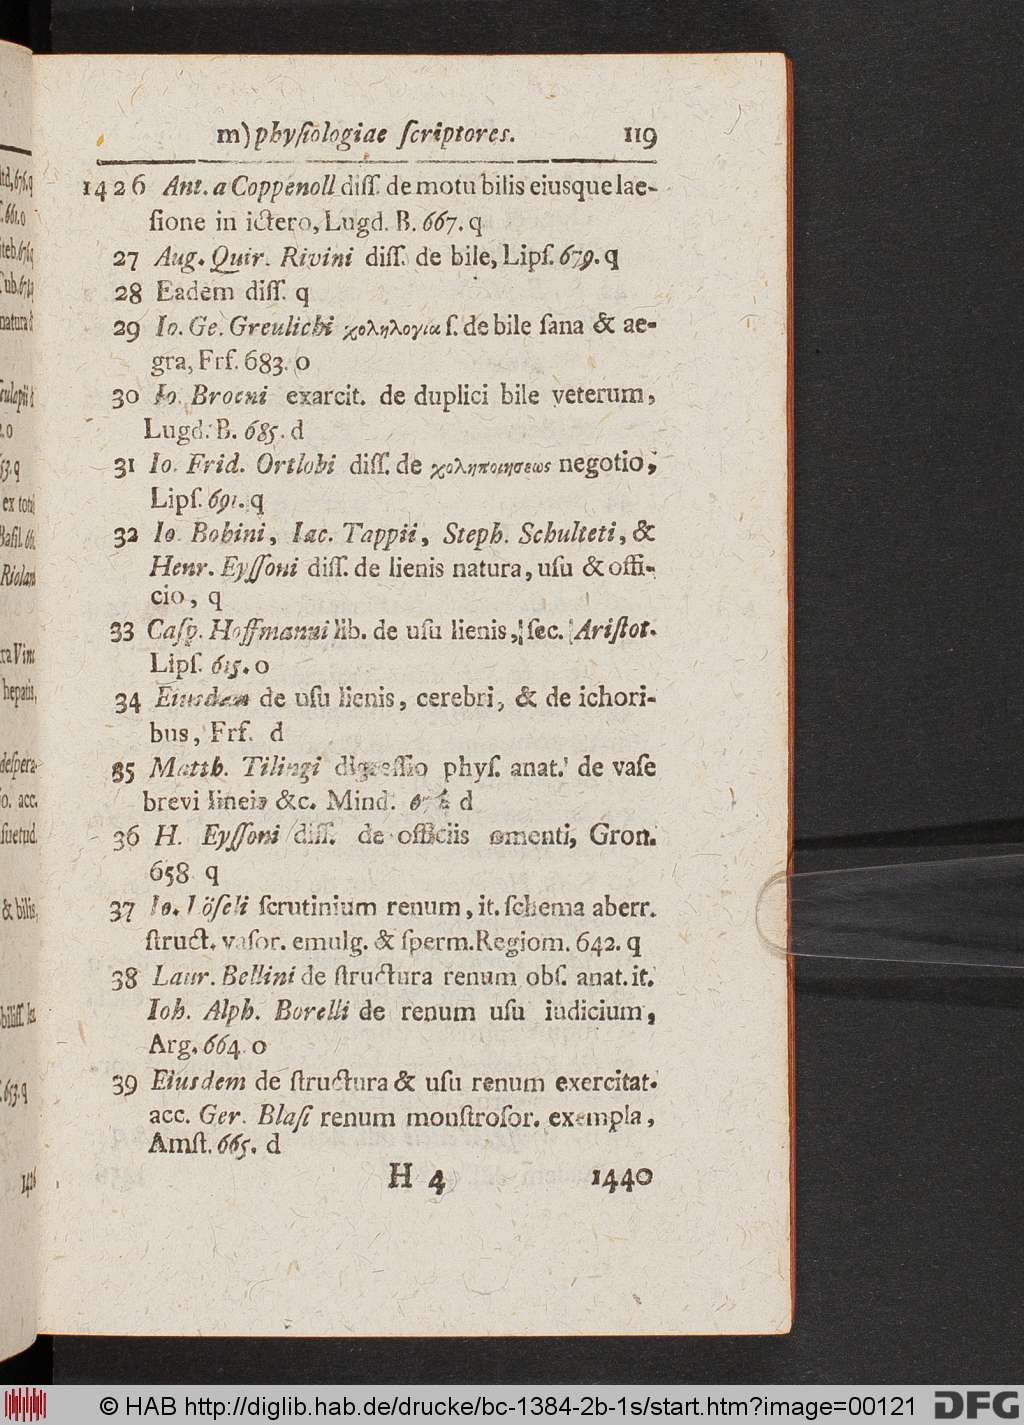 m) phyſiologiae ſcriptores. 119
1426 Ant. a Coppenoll diſſ. de motu bilis eiusque lae-
ſione in ictero, Lugd. B. 667. q
27 Aug. Quir. Rivini diſſ. de bile, Lipſ. 679. q
28 Eadem diſſ. q
29 Io. Ge. Greulichi χοληλογια ſ. de bile ſana & ae-
gra, Frf. 683. o
30 Io. Broeni exarcit. de duplici bile veterum,
Lugd. B. 685. d
31 Io. Frid. Ortlobi diſſ. de χοληποιησεως negotio,
Lipſ. 691. q
32 Io. Bohini, Iac. Tappii, Steph. Schulteti, &
Henr. Eyſſoni diſſ. de lienis natura, uſu & offi-
cio, q
33 Caſp. Hoffmanni lib. de uſu lienis, ſec. Ariſtot.
Lipſ. 615. o
34 Eiusdem de uſu lienis, cerebri, & de ichori-
bus, Frf. d
35 Matth. Tilingi digreſſio phyſ. anat. de vaſe
brevi lineis &c. Mind. d
36 H. Eyſſoni diſſ. de officiis omenti, Gron.
658. q
37 Io. Löſeli ſcrutinium renum, it. ſchema aberr.
ſtruct. vaſor. emulg. & ſperm. Regiom. 642. q
38 Laur. Bellini de ſtructura renum obſ. anat. it.
Ioh. Alph. Borelli de renum uſu iudicium,
Arg. 664 o
39 Eiusdem de ſtructura & uſu renum exercitat.
acc. Ger. Blaſi renum monſtroſor. exempla,
Amſt. 665. d
H 4 1440
© HAB http://diglib.hab.de/drucke/bc-1384-2b-1s/start.htm?image=00121 DFG